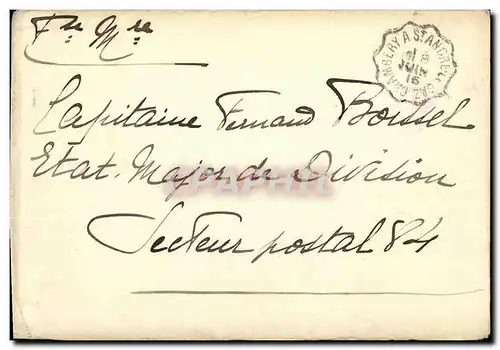 Fse Mre
CHAMBERY A ST ANDRE
8
JUIN
16
Capitaine Fernand Boissel
Etat. Major. de Division
Secteur postal 84